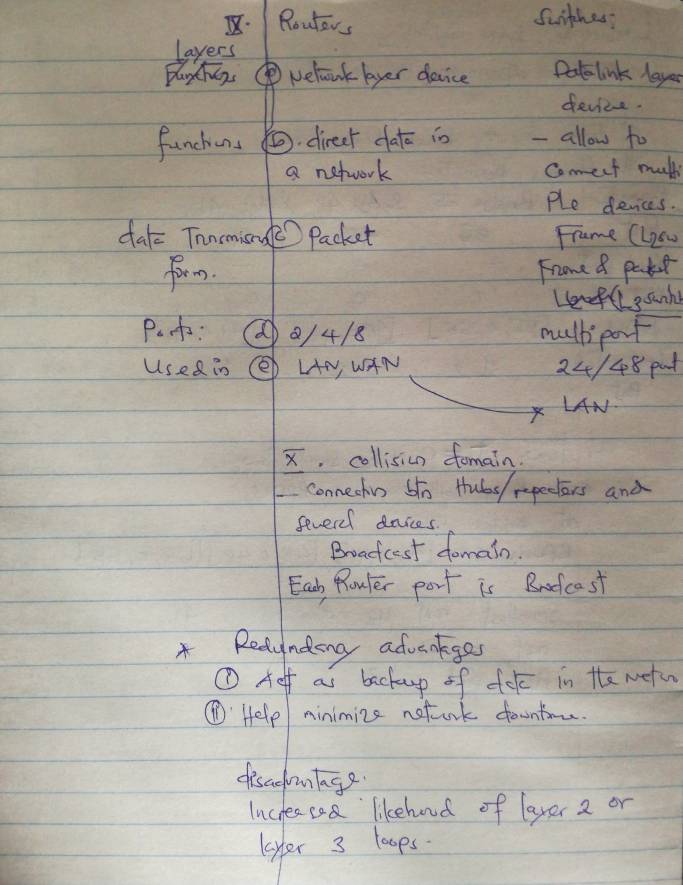 IX. Routers Switches:
Layers
Functions (a) Network layer device Datalink layer
device.
functions (b). direct data in - allow to
a network Connect multi
Ple devices.
data Transmission (c) Packet Frame (L2sw
form. Frame & packet
(L3 switch
Ports: (d) 2/4/8 multiport
Used in (e) LAN, WAN 24/48 port
LAN.
X. collision domain.
- connection btn Hubs/repeaters and
several devices.
Broadcast domain.
Each Router port is Brodcast
* Redundany advantages
(i) Act as backup of data in the Netw
(ii). Help minimize network downtime.
disadvantage.
Increased likehood of layer 2 or
layer 3 loops.